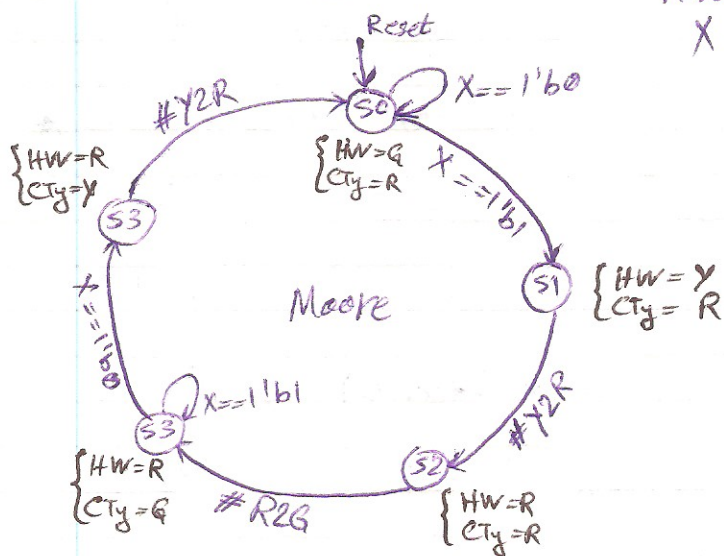 X
Reset
S0
X==1'b0
{HW=G
CTy=R
X==1'b1
S1
{HW=Y
CTy=R
#Y2R
S2
{HW=R
CTy=R
#R2G
S3
X==1'b1
{HW=R
CTy=G
X==1'b0
S3
{HW=R
CTy=Y
#Y2R
Moore